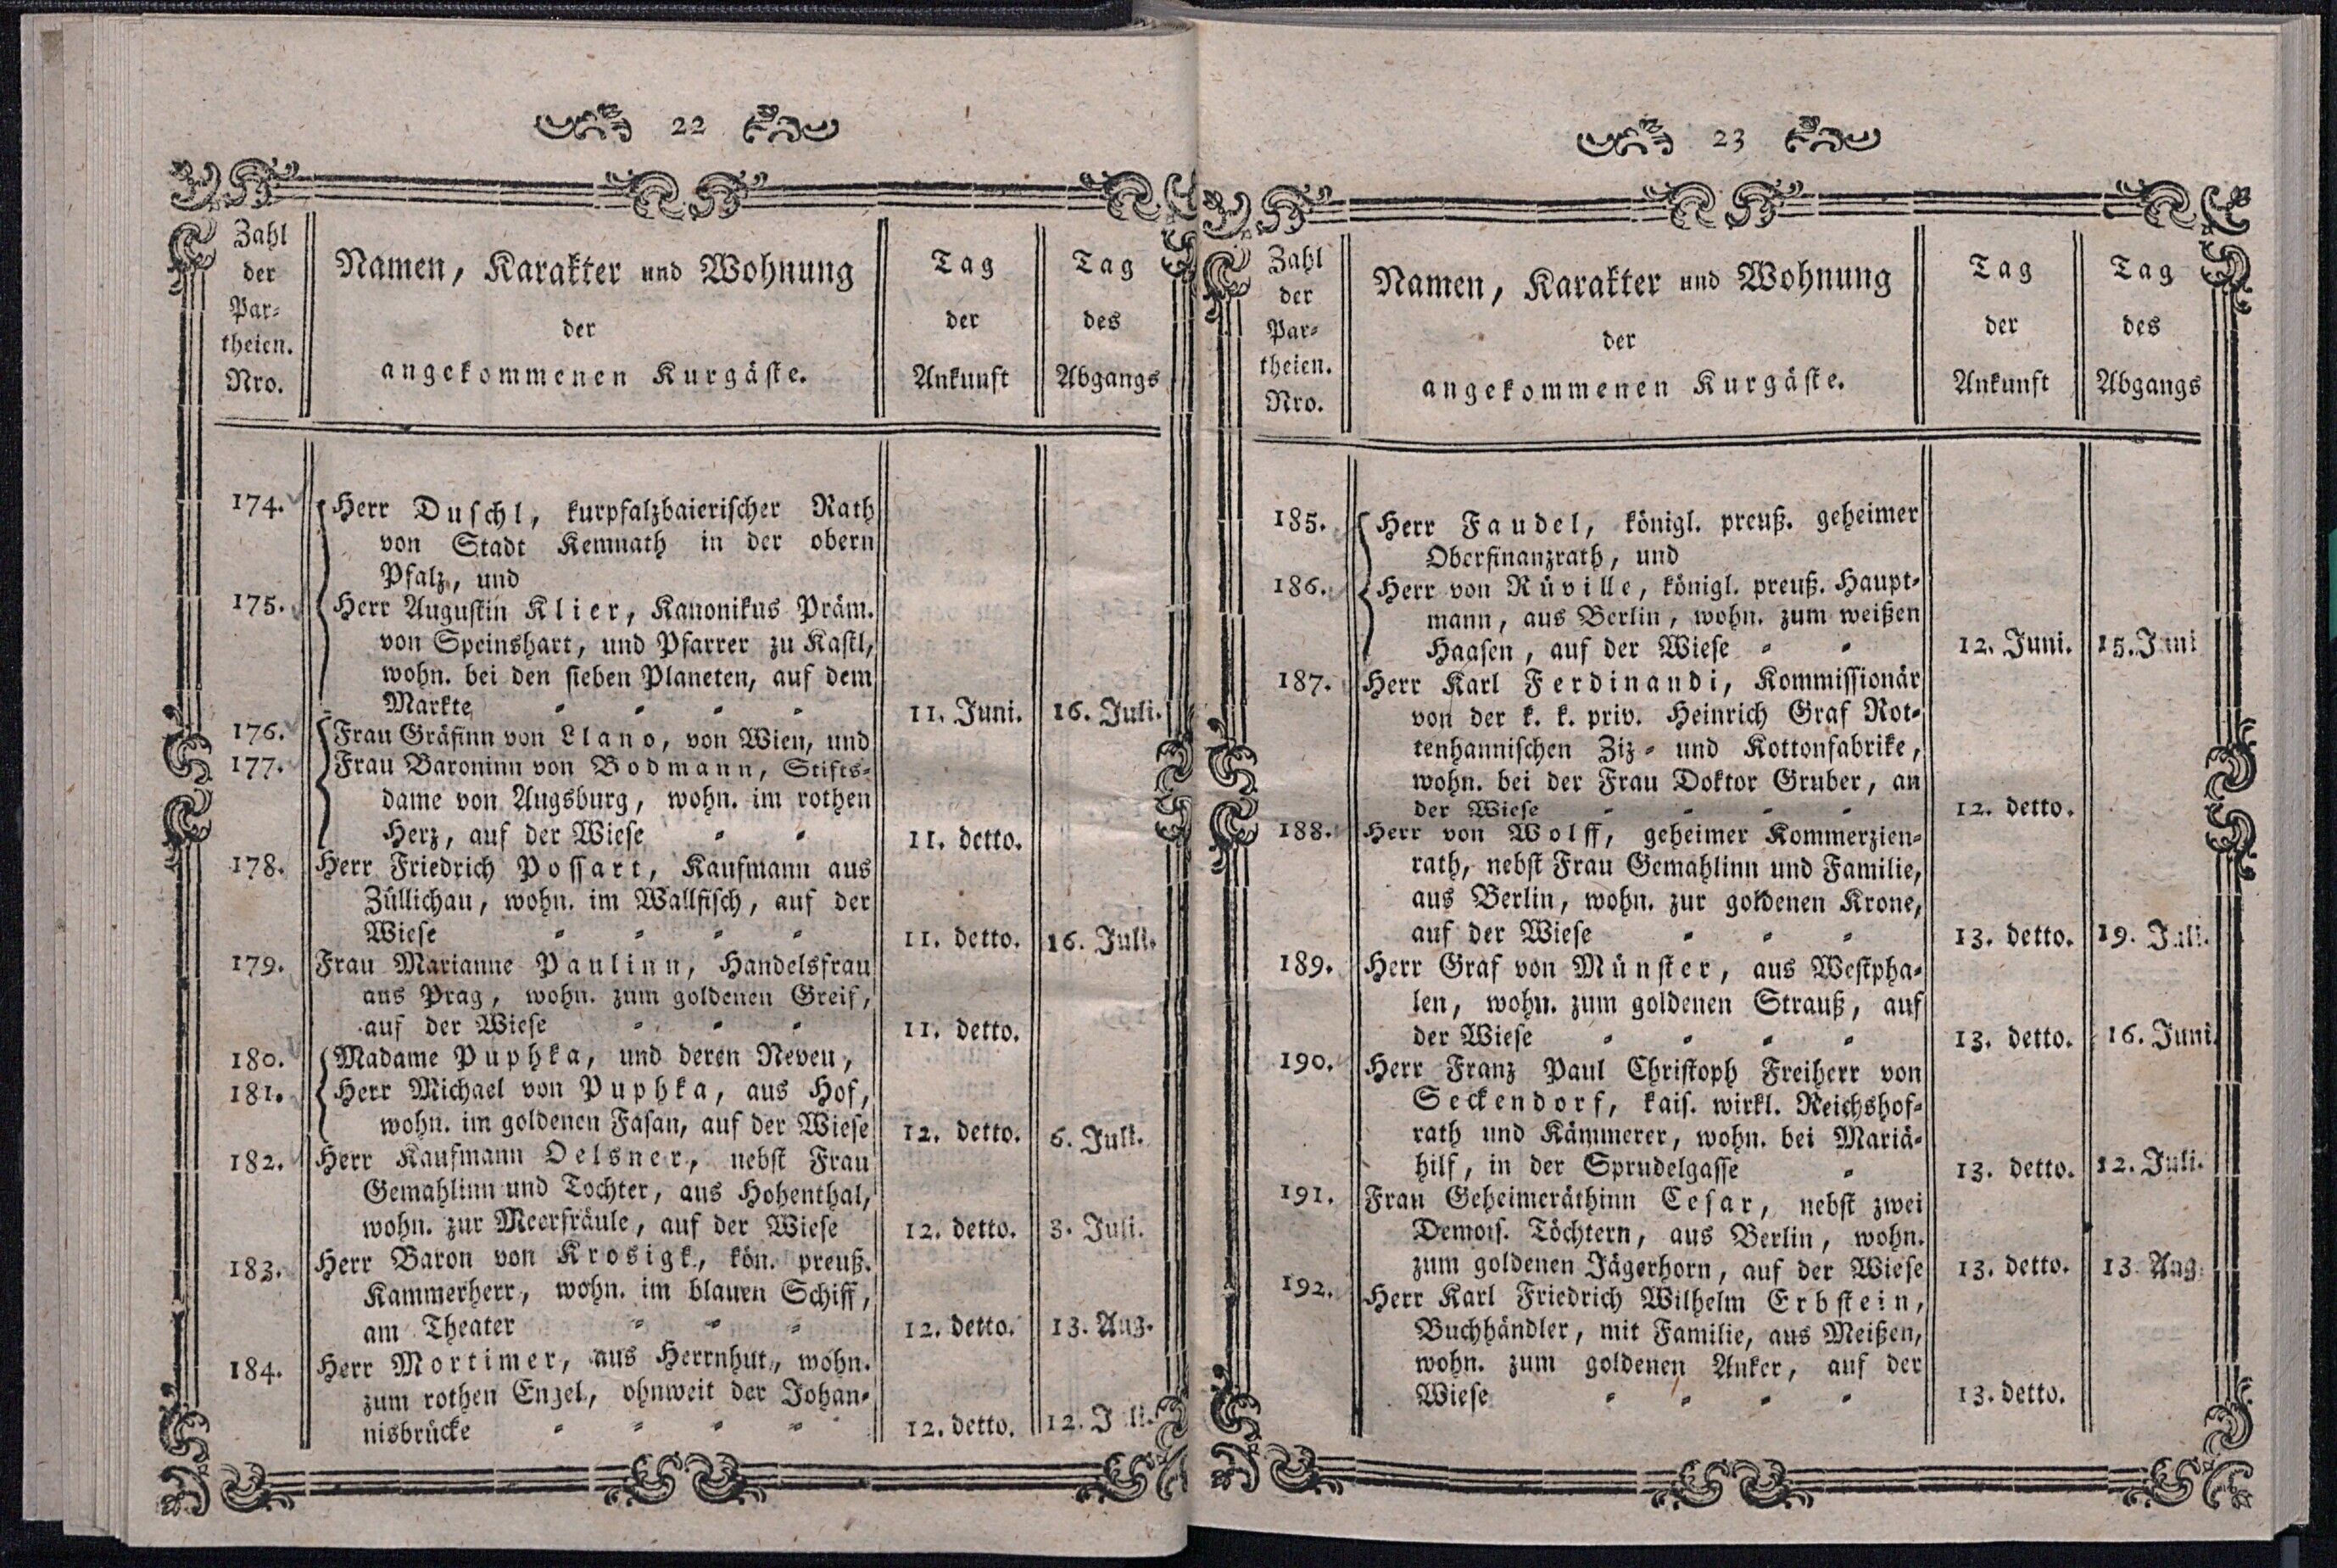 22
Zahl
der
Par-
theien.
Nro.
Namen, Karakter und Wohnung
der
angekommenen Kurgäste.
Tag
der
Ankunft
Tag
des
Abgangs
174. Herr Duschl, kurpfalzbaierischer Rath
von Stadt Kemnath in der obern
Pfalz, und
175. Herr Augustin Klier, Kanonikus Präm.
von Speinshart, und Pfarrer zu Kastl,
wohn. bei den sieben Planeten, auf dem
Markte - - - - 11. Juni. 16. Juli.
176. Frau Gräfinn von Llano, von Wien, und
177. Frau Baroninn von Bodmann, Stifts-
dame von Augsburg, wohn. im rothen
Herz, auf der Wiese - - 11. detto.
178. Herr Friedrich Possart, Kaufmann aus
Züllichau, wohn. im Wallfisch, auf der
Wiese - - - - 11. detto. 16. Juli.
179. Frau Marianne Paulinn, Handelsfrau
aus Prag, wohn. zum goldenen Greif,
auf der Wiese - - - 11. detto.
180. Madame Puphka, und deren Neveu,
181. Herr Michael von Puphka, aus Hof,
wohn. im goldenen Fasan, auf der Wiese 12. detto. 6. Juli.
182. Herr Kaufmann Oelsner, nebst Frau
Gemahlinn und Tochter, aus Hohenthal,
wohn. zur Meerfräule, auf der Wiese 12. detto. 3. Juli.
183. Herr Baron von Krosigk, kön. preuß.
Kammerherr, wohn. im blauen Schiff,
am Theater - - - 12. detto. 13. Aug.
184. Herr Mortimer, aus Herrnhut, wohn.
zum rothen Engel, ohnweit der Johan-
nisbrücke - - - - 12. detto. 12. Juli.
23
Zahl
der
Par-
theien.
Nro.
Namen, Karakter und Wohnung
der
angekommenen Kurgäste.
Tag
der
Ankunft
Tag
des
Abgangs
185. Herr Faudel, königl. preuß. geheimer
Oberfinanzrath, und
186. Herr von Rüville, königl. preuß. Haupt-
mann, aus Berlin, wohn. zum weißen
Haasen, auf der Wiese - - 12. Juni. 15. Juni
187. Herr Karl Ferdinandi, Kommissionär
von der k. k. priv. Heinrich Graf Rot-
tenhannischen Ziz- und Kottonfabrike,
wohn. bei der Frau Doktor Gruber, an
der Wiese - - - - 12. detto.
188. Herr von Wolff, geheimer Kommerzien-
rath, nebst Frau Gemahlinn und Familie,
aus Berlin, wohn. zur goldenen Krone,
auf der Wiese - - - 13. detto. 19. Juli.
189. Herr Graf von Münster, aus Westpha-
len, wohn. zum goldenen Strauß, auf
der Wiese - - - - 13. detto. 16. Juni.
190. Herr Franz Paul Christoph Freiherr von
Seckendorf, kais. wirkl. Reichshof-
rath und Kämmerer, wohn. bei Mariä-
hilf, in der Sprudelgasse - 13. detto. 12. Juli.
191. Frau Geheimeräthinn Cesar, nebst zwei
Demois. Töchtern, aus Berlin, wohn.
zum goldenen Jägerhorn, auf der Wiese 13. detto. 13 Aug.
192. Herr Karl Friedrich Wilhelm Erbstein,
Buchhändler, mit Familie, aus Meißen,
wohn. zum goldenen Anker, auf der
Wiese - - - - 13. detto.